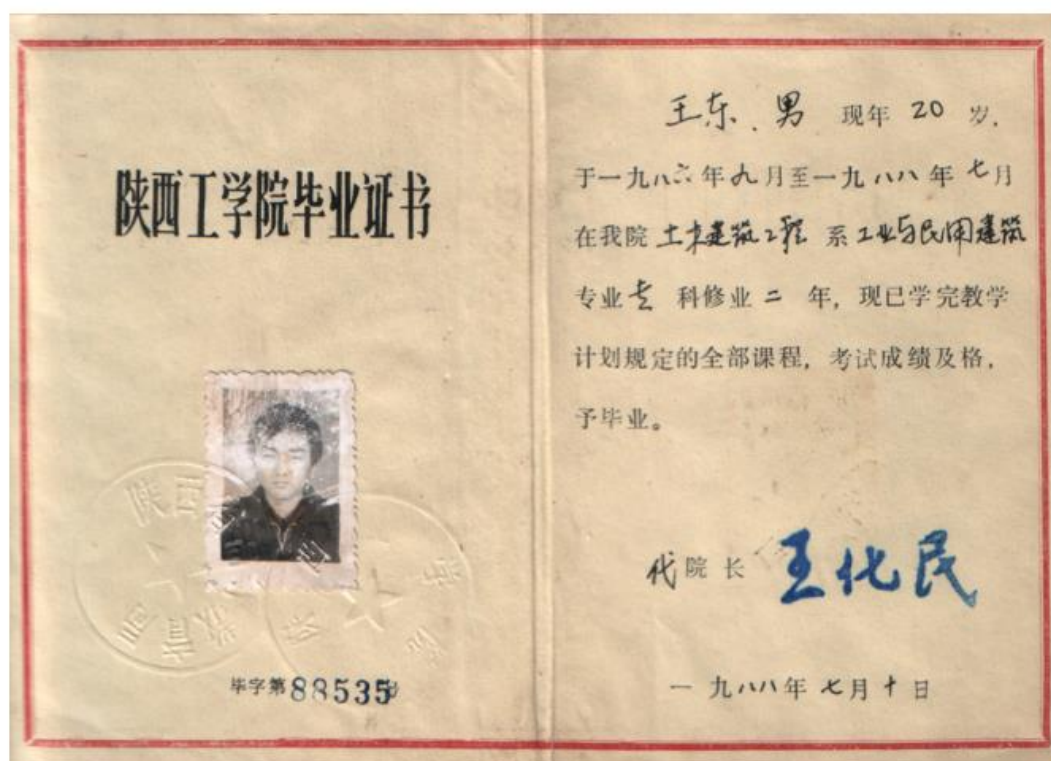 陕西工学院毕业证书
毕字第88535号
王东、男 现年 20 岁,
于一九八六年九月至一九八八年七月
在我院 土木建筑工程 系 工业与民用建筑
专业专 科修业 二 年, 现已学完教学
计划规定的全部课程, 考试成绩及格,
予毕业。
代院长 王化民
一九八八年七月十日